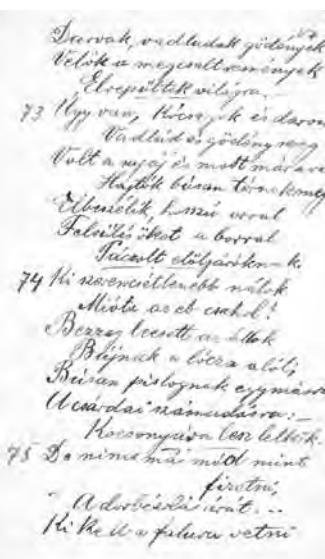 Darvak, vadludak gödények
Velök a megcsalt remények
Elrepültek világra.
73 Úgy van, kócsagok és darvak
Vadlúd és gödény
Volt a zajaj és most már
Hajtók búsan térnek meg
Elbeszélik, hosszú orral
Felsülésöket a borral
Táczolt elöljáróknak.
74 Ki szerencsétlenebb nálok
Mióta az eb csahol?
Bezzeg leesett az állok
Bújnak a lócza alól;
Búsan pislognak egymásra
A csárdai számadásra:-
Kocsonyává lesz lelkök.
75 De nincs már mód mint
fizetni,
A dorbézolás árát...
Ki kell a falura vetni